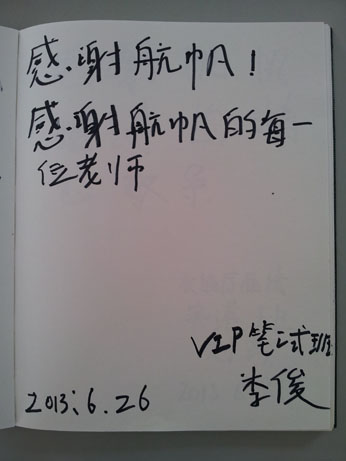 感谢航帆!
感谢航帆的每一
位老师
VIP笔试班
李俊
2013.6.26